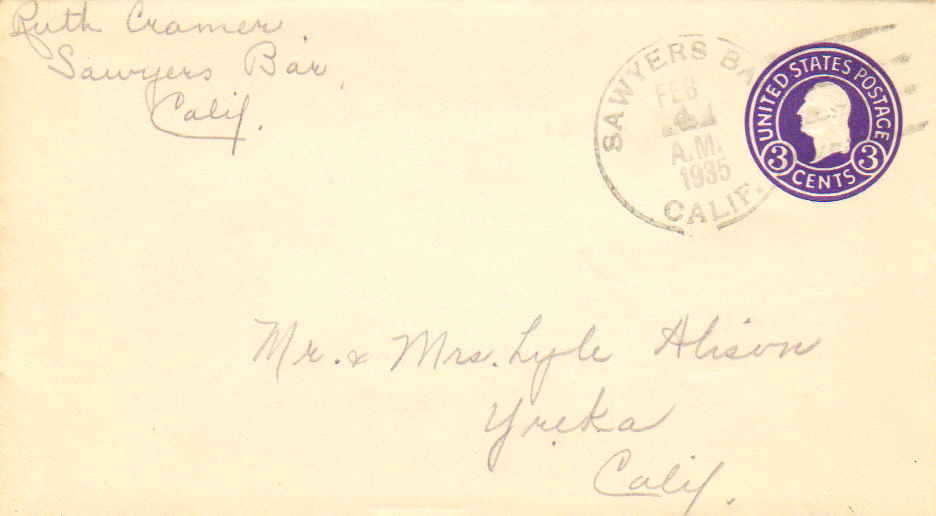 Ruth Cramer.
Sawyers Bar,
Calif.
SAWYERS BA
FEB
A.M.
1935
CALIF.
UNITED STATES POSTAGE
3 CENTS 3
Mr. & Mrs. Lyle Alison
Yreka
Calif.